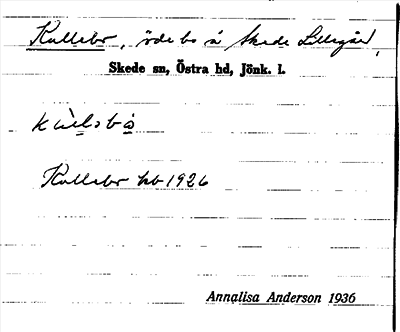 Kullebo, öde bo å Skede Lillegård,
Skede sn, Östra hd, Jönk. l.
Kullebo hb 1926
Annalisa Anderson 1936